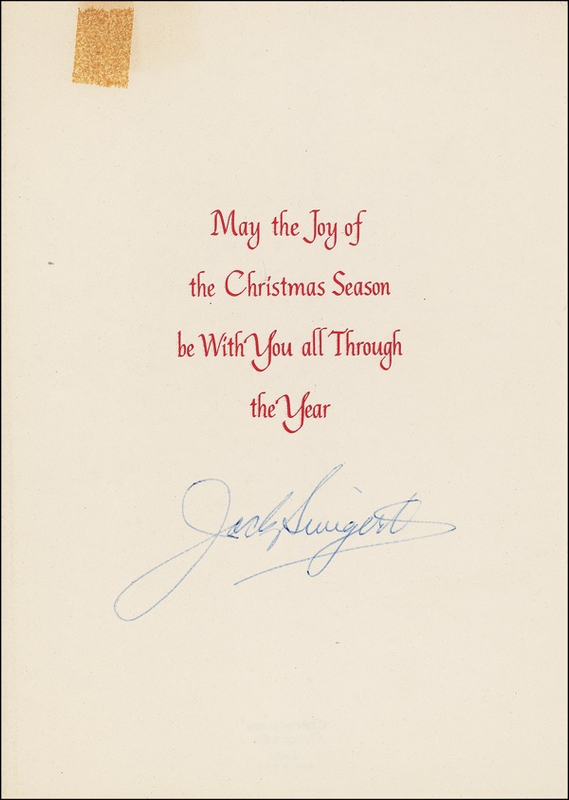 May the Joy of
the Christmas Season
be With You all Through
the Year
Jack Swigert